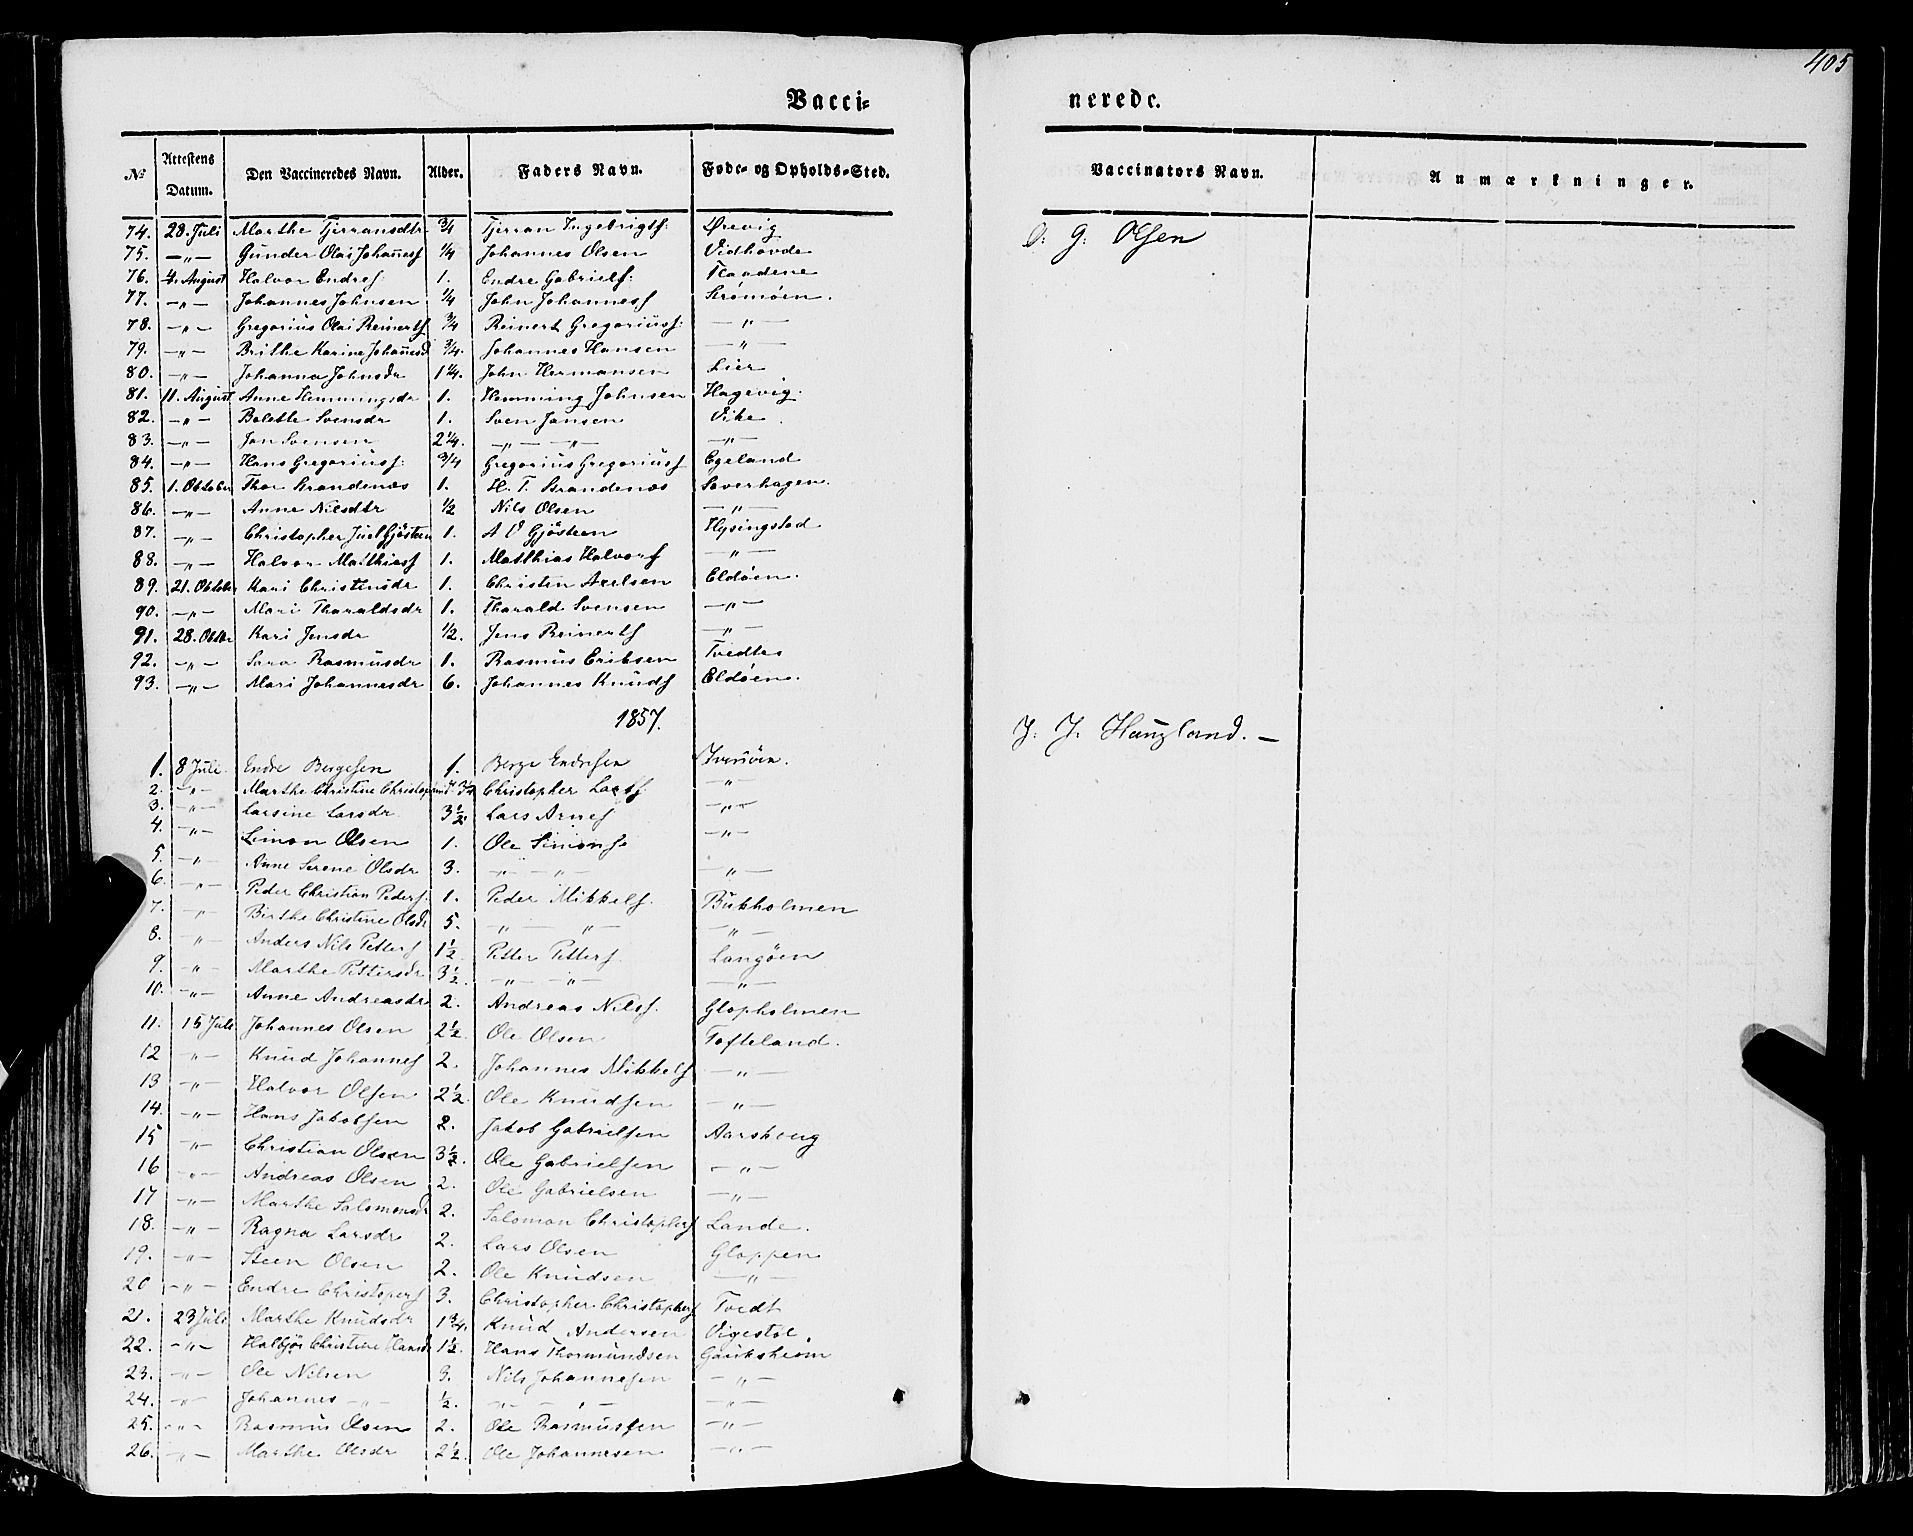 405
Vacci-
nerede.
No Attestens Datum. Den Vaccineredes Navn. Alder. Faders Navn. Føde- og Opholds-Sted. Vaccinators Navn. Anmærkninger.
74. 28. Juli Marthe Tjerransdtr 3/4 Tjerran Ingebrigts: Ørevig O: G: Olsen
75. —„— Gunder Olai Johaness 1/4 Johannes Olsen Vidhovde
76. 4. August Halvor Endres: 1. Endre Gabriels: Flaadene
77. —„— Johannes Johnsen 1/4 John Johanness Strømøen.
78. —„— Gregorius Olai Reinerts 3/4 Reinert Gregoriuss: —„—
79. —„— Brithe Karine Johanesd 3/4. Johannes Hansen —„—
80. —„— Johanna Johnsdr 1 1/4. John Hermansen Lier
81. 11. August Anne Hemmingsdr 1. Hemming Johnsen Hagevig.
82. —„— Bolette Svensdr 1. Sven Jansen Vike
83. —„— Jan Svensen 2 1/4. —„— —„— —„—
84. —„— Hans Gregoriuss: 3/4 Gregorius Gregoriuss Egeland
85. 1. Oktober Thor Brandenæs 1. H. T. Brandenæs Søverhagen.
86. —„— Anne Nilsdtr 1/2 Nils Olsen —„—
87. —„— Christopher Juel Gjösteen 1. A V Gjösteen Hysingstad
88. —„— Halvor Mathiass 1. Matthias Halvors —„—
89. 21. Oktober Kari Christensdr 1. Christen Axelsen Eldøen.
90. —„— Mari Tharaldsdr 1. Tharald Svensen —„—
91. 28. Oktbr Kari Jensdr 1/2. Jens Reinerts —„—
92. —„— Sara Rasmusdr 1. Rasmus Eriksen Tvedtes
93. —„— Mari Johannesdr 6. Johannes Knuds Eldøen.
1857.
J. J. Haugland. —
1. 8 Juli. Endre Bergesen 1. Berge Endresen
2. —„— Marthe Christine Christophersd Christopher Lars —„—
3. —„— Larsine Larsdr 3 1/2. Lars Arnes —„—
4. —„— Simon Olsen 1. Ole Simons. —„—
5. —„— Anne Serene Olsdr 3. —„— —„— —„—
6. —„— Peder Christian Peders. 1. Peder Mikkels. Bukholmen
7. —„— Birthe Christine Olsdr 5. —„— —„— —„—
8. —„— Anders Nils Petters 1 1/2 Petter Petters. Langøen
9. —„— Marthe Pettersdr 3 1/2 —„— —„— —„—
10. —„— Anne Andreasdr 2. Andreas Nilss. Glopholmen
11. 15 Juli Johannes Olsen 2 1/2 Ole Olsen Tofteland.
12 —„— Knud Johannes 2. Johannes Mikkels —„—
13 —„— Halvor Olsen 2 1/2 Ole Knudsen —„—
14. —„— Hans Jakobsen 2. Jakob Gabrielsen Aarskoug
15 —„— Christian Olsen 3 1/2. Ole Gabrielsen —„—
16 —„— Andreas Olsen 2. Ole Gabrielsen —„—
17 —„— Marthe Salomonsdr 2. Salomon Christophers Lande.
18. —„— Ragna Larsdr 2. Lars Olsen Gloppen
19. —„— Steen Olsen 2. Ole Knudsen —„—
20 —„— Endre Christopers 3. Christopher Christophers Tvedt
21. 23 Juli Marthe Knudsdr 1 3/4. Knud Andersen Vigestøl.
22. —„— Halbjør Christine Hansdr 1 1/2. Hans Thormundsen Gauksheim
23. —„— Ole Nilsen 3. Nils Johannesen —„—
24. —„— Johannes —„— 1/2. —„— —„— —„—
25. —„— Rasmus Olsen 2. Ole Rasmussen —„—
26. —„— Marthe Olsdr 2 1/2. Ole Johannesen —„—